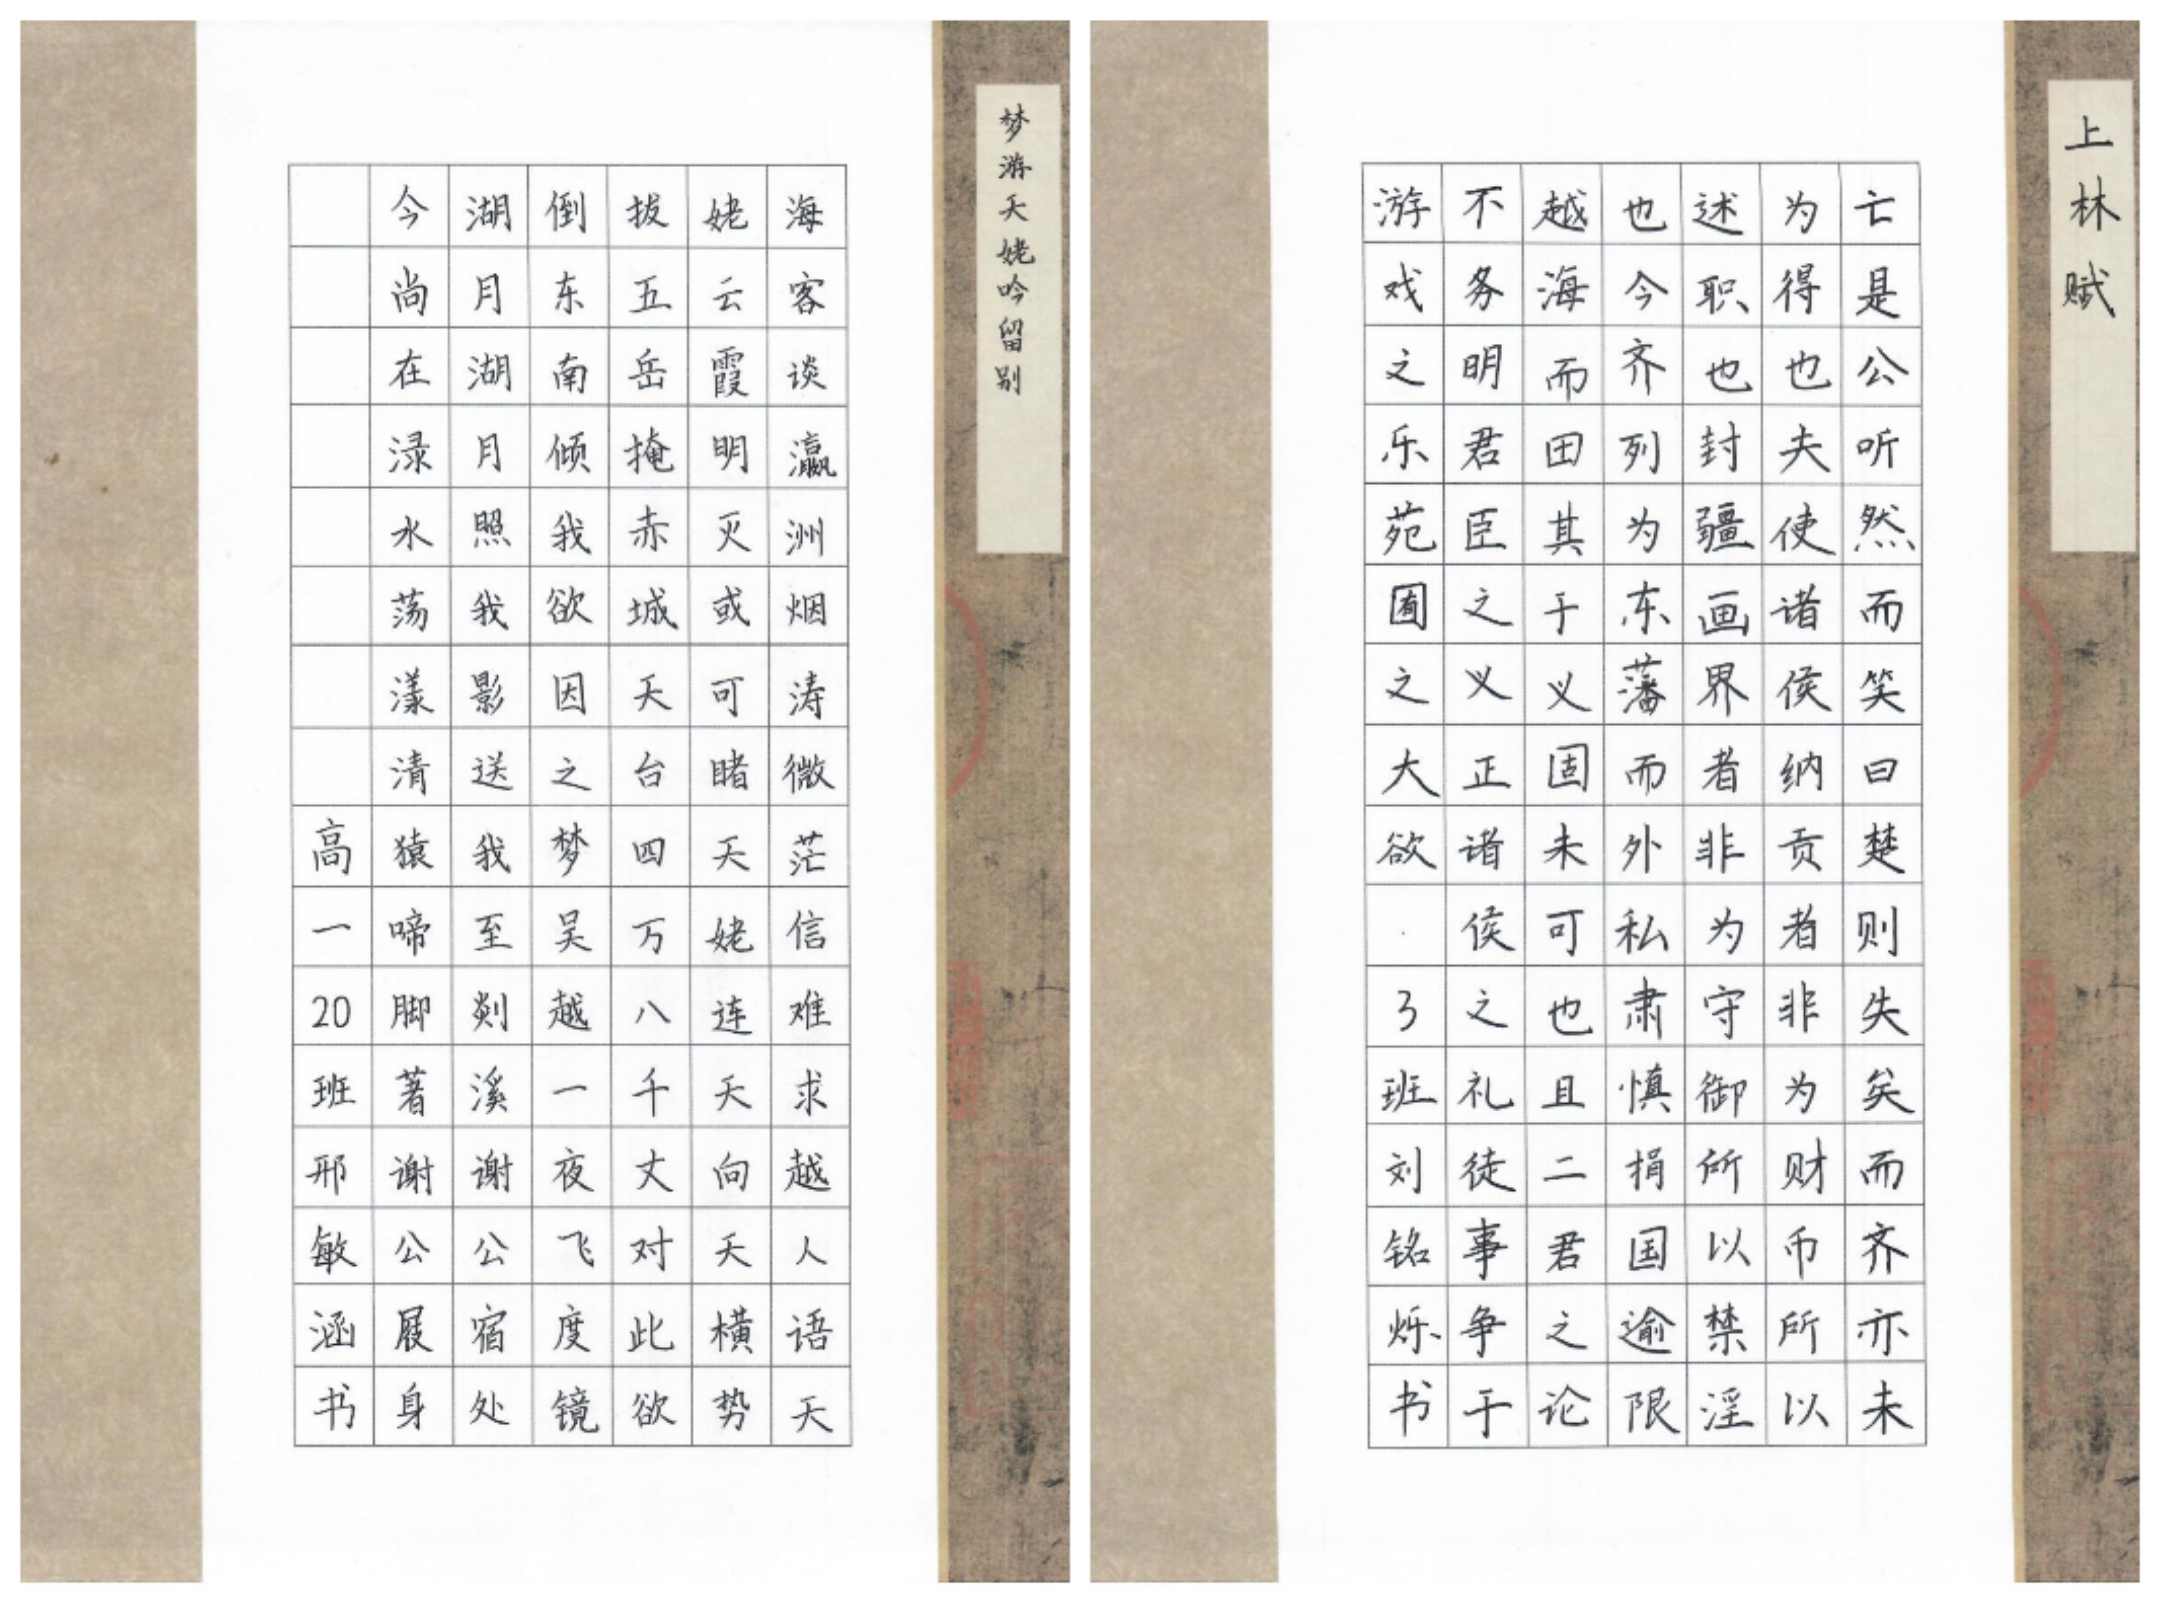 梦游天姥吟留别
海客谈瀛洲烟涛微茫信难求越人语天
姥云霞明灭或可睹天姥连天向天横势
拔五岳掩赤城天台四万八千丈对此欲
倒东南倾我欲因之梦吴越一夜飞度镜
湖月湖月照我影送我至剡溪谢公宿处
今尚在渌水荡漾清猿啼脚著谢公屐身
高一20班邢敏涵书
上林赋
亡是公听然而笑曰楚则失矣而齐亦未
为得也夫使诸侯纳贡者非为财币所以
述职也封疆画界者非为守御所以禁淫
也今齐列为东藩而外私肃慎捐国逾限
越海而田其于义固未可也且二君之论
不务明君臣之义正诸侯之礼徒事争于
游戏之乐苑囿之大欲
3班刘铭烁书